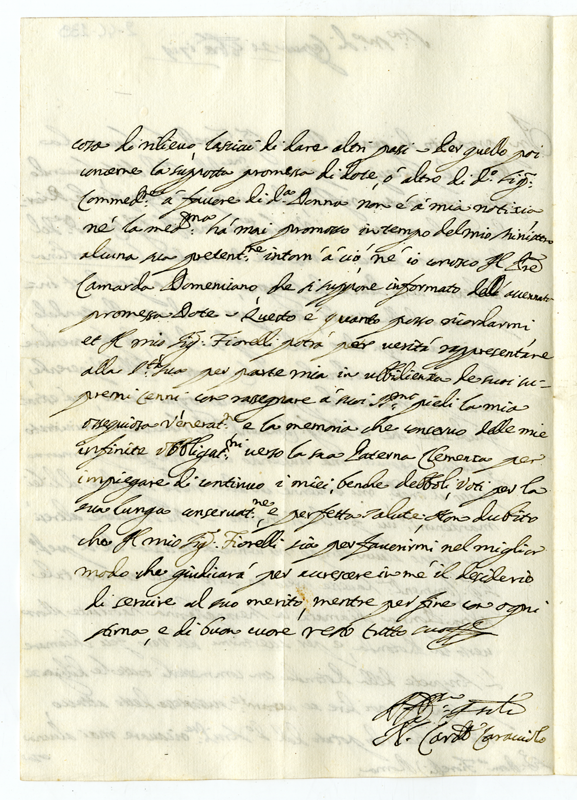 cosa di rilievo, lasciai di dare altri passi. Per quello poi
concerne la supposta promessa di dote, ó altro di d.º Sig.r
Commend.re á favore di d.ª Donna non é á mia notizia
né la med.ma há mai promosso in tempo del mio Ministro
alcuna sua pretent.ne intorn'á ció, né io conosco Il Pre
Camarda Domenicano che si suppone informato dell'accennata
promessa Dote. Questo é quanto posso ricordarmi
et Il mio Sig.r Fiorelli potrá per veritá rappresentare
alla S.tá sua per parte mia in ubbidienza de suoi su-
premi cenni con rasegnare á suoi S.mi piedi la mia
ossequiosa Venerat.ne e la memoria che conservo delle mie
infinite obbligat.ni verso la sua Paterna Clemenza per
impiegare di continuo i miei, benche debboli, Voti per la
sua lunga conservat.ne e perfetta salute. Non dubito
che Il mio Sig.r Fiorelli sia per favorirmi nel miglior
modo che giudicará per accrescere in mé il desiderio
di servire al suo merito, mentre per fine con ogni
stima, e di buon cuore resto tutto
N. Card. Caracciolo